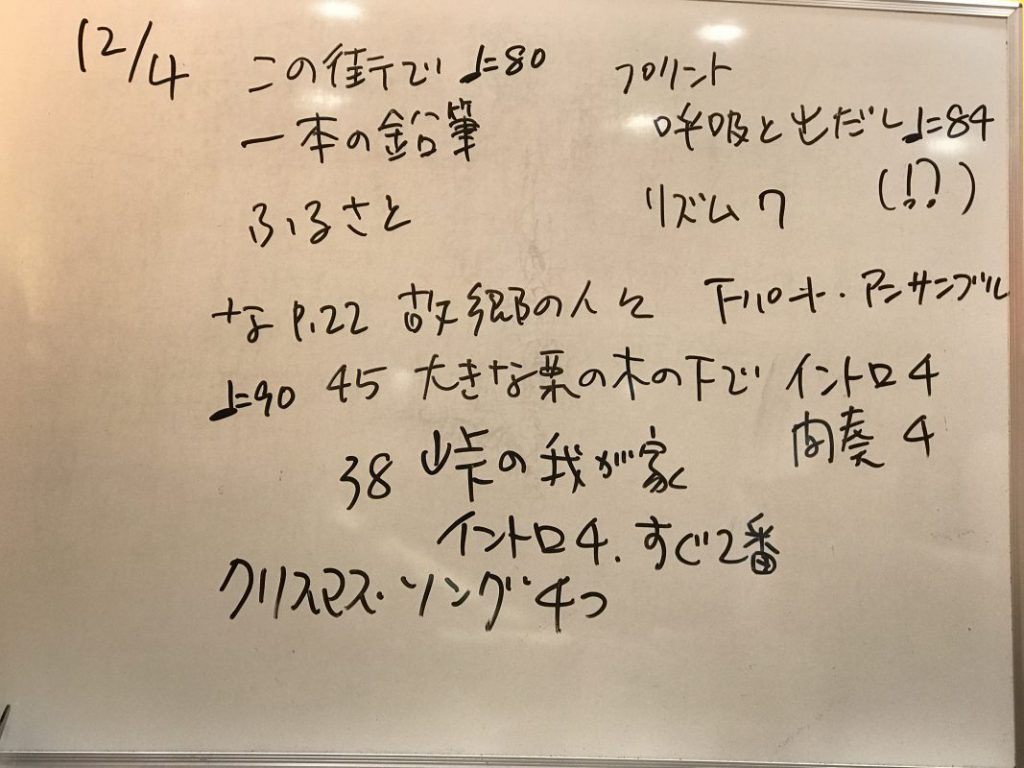 12/4
この街で ♩=80
一本の鉛筆
ふるさと
プリント
呼吸と出だし ♩=84
リズム7 (!?)
な P.22 故郷の人々 下パート・アンサンブル
♩=90 45 大きな栗の木の下で イントロ4
間奏 4
38 峠の我が家
イントロ4. すぐ2番
クリスマス・ソング 4つ